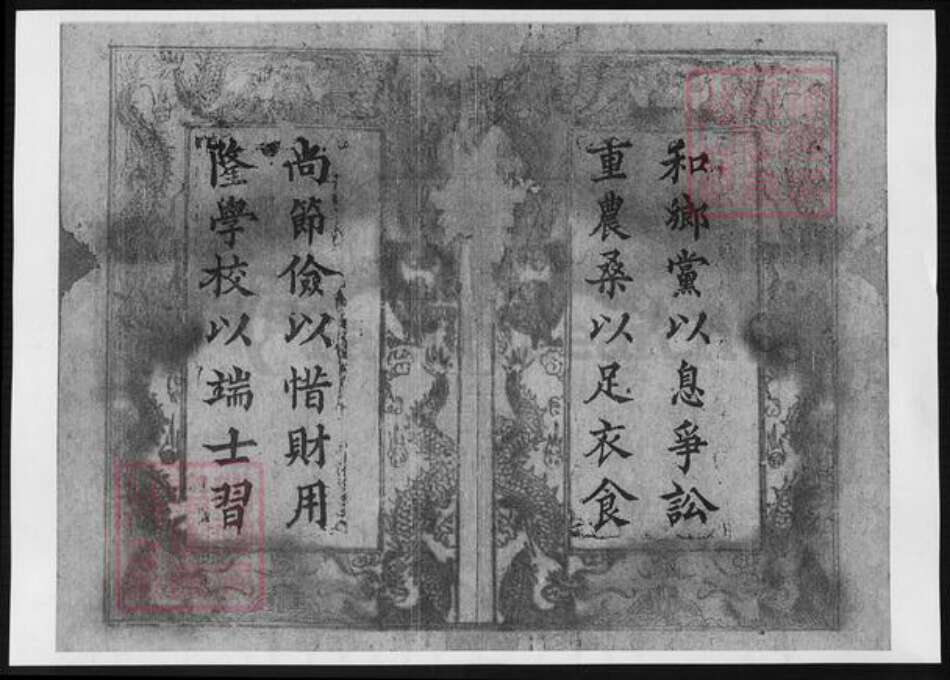 和鄉黨以息爭訟
重農桑以足衣食
尚節儉以惜財用
隆學校以端士習